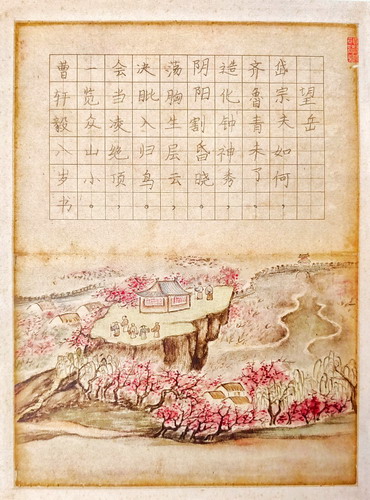 望岳
岱宗夫如何，
齐鲁青未了。
造化钟神秀，
阴阳割昏晓。
荡胸生层云，
决眦入归鸟，
会当凌绝顶，
一览众山小。
曹轩毅八岁书